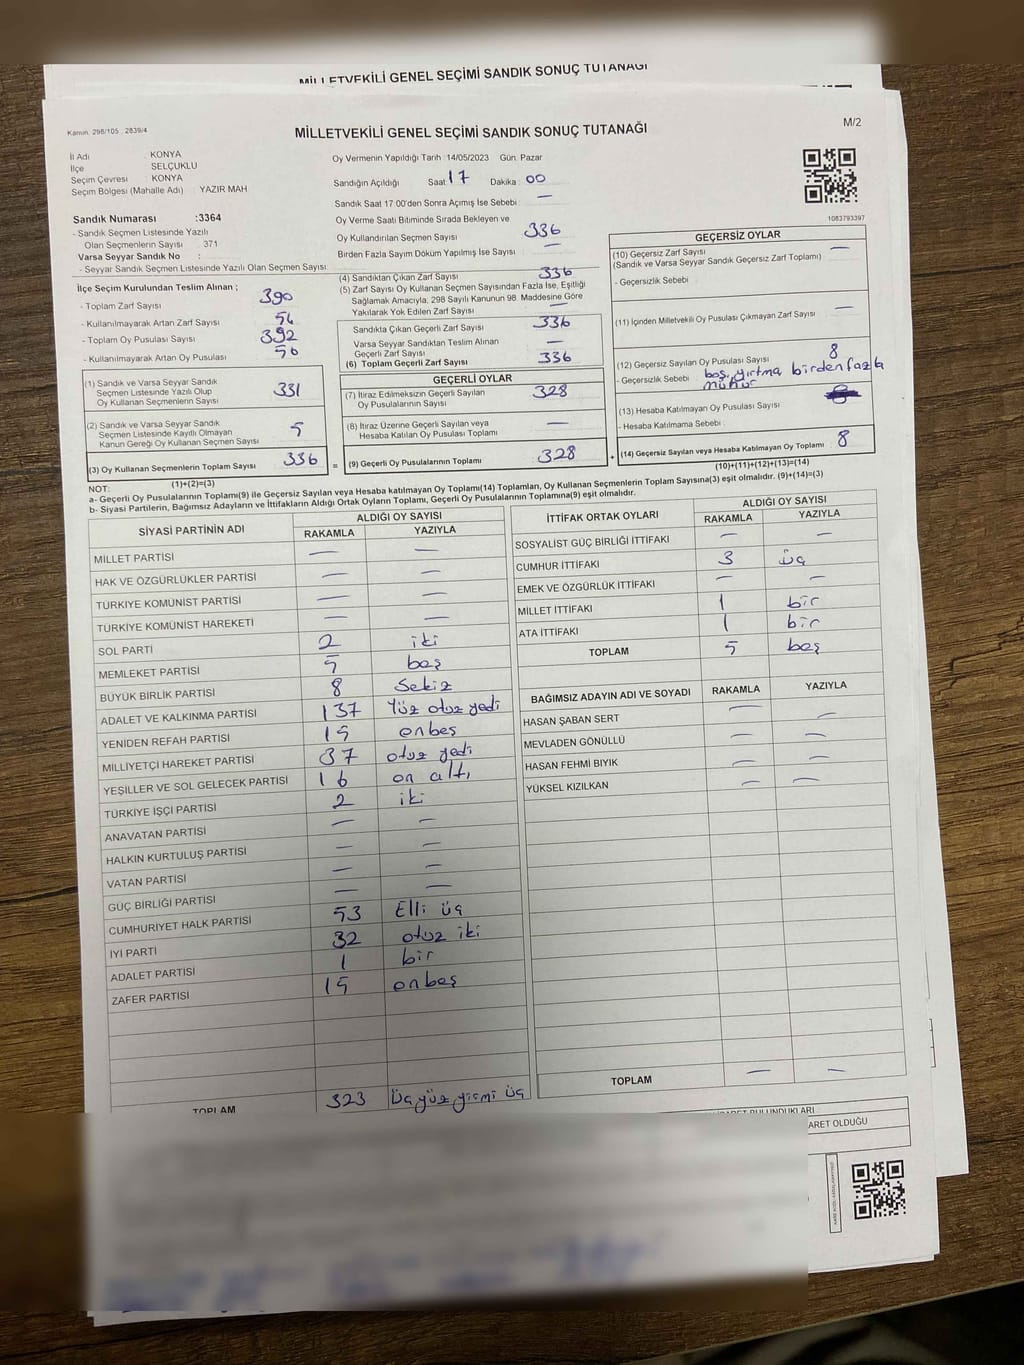 MİLLETVEKİLİ GENEL SEÇİMİ SANDIK SONUÇ TUTANAĞI
Kanun. 298/105 , 2839/4
MİLLETVEKİLİ GENEL SEÇİMİ SANDIK SONUÇ TUTANAĞI
M/2
İl Adı KONYA
İlçe SELÇUKLU
Seçim Çevresi : KONYA
Seçim Bölgesi (Mahalle Adı) YAZIR MAH
Sandık Numarası :3364
- Sandık Seçmen Listesinde Yazılı
Olan Seçmenlerin Sayısı : 371
Varsa Seyyar Sandık No :
- Seyyar Sandık Seçmen Listesinde Yazılı Olan Seçmen Sayısı
Oy Vermenin Yapıldığı Tarih :14/05/2023 Gün. Pazar
Sandığın Açıldığı Saat: 17 Dakika : 00
Sandık Saat 17 00'den Sonra Açımış İse Sebebi : —
Oy Verme Saati Bitiminde Sırada Bekleyen ve
Oy Kullandırılan Seçmen Sayısı 336
Birden Fazla Sayım Döküm Yapılmış İse Sayısı : —
1083793397
İlçe Seçim Kurulundan Teslim Alınan ;
- Toplam Zarf Sayısı 390
- Kullanılmayarak Artan Zarf Sayısı 54
- Toplam Oy Pusulası Sayısı 392
- Kullanılmayarak Artan Oy Pusulası 56
(1) Sandık ve Varsa Seyyar Sandık
Seçmen Listesinde Yazılı Olup
Oy Kullanan Seçmenlerin Sayısı 331
(2) Sandık ve Varsa Seyyar Sandık
Seçmen Listesinde Kayıtlı Olmayan
Kanun Gereği Oy Kullanan Seçmen Sayısı 5
(3) Oy Kullanan Seçmenlerin Toplam Sayısı 336
(1)+(2)=(3)
(4) Sandıktan Çıkan Zarf Sayısı 336
(5) Zarf Sayısı Oy Kullanan Seçmen Sayısından Fazla İse, Eşitliği
Sağlamak Amacıyla, 298 Sayılı Kanunun 98. Maddesine Göre
Yakılarak Yok Edilen Zarf Sayısı —
Sandıkla Çıkan Geçerli Zarf Sayısı 336
Varsa Seyyar Sandıktan Teslim Alınan
Geçerli Zarf Sayısı —
(6) Toplam Geçerli Zarf Sayısı 336
GEÇERLİ OYLAR
(7) İtiraz Edilmeksizin Geçerli Sayılan
Oy Pusulalarının Sayısı 328
(8) İtiraz Üzerine Geçerli Sayılan veya
Hesaba Katılan Oy Pusulası Toplamı —
= (9) Geçerli Oy Pusulalarının Toplamı 328
GEÇERSİZ OYLAR
(10) Geçersiz Zarf Sayısı —
(Sandık ve Varsa Seyyar Sandık Geçersiz Zarf Toplamı)
- Geçersizlik Sebebi
(11) İçinden Milletvekili Oy Pusulası Çıkmayan Zarf Sayısı —
(12) Geçersiz Sayılan Oy Pusulası Sayısı 8
- Geçersizlik Sebebi boş, yırtma, birden fazla
mühür
(13) Hesaba Katılmayan Oy Pusulası Sayısı
- Hesaba Katılmama Sebebi
+ (14) Geçersiz Sayılan veya Hesaba Katılmayan Oy Toplamı 8
(10)+(11)+(12)+(13)=(14)
NOT:
a- Geçerli Oy Pusulalarının Toplamı(9) ile Geçersiz Sayılan veya Hesaba katılmayan Oy Toplamı(14) Toplamları, Oy Kullanan Seçmenlerin Toplam Sayısına(3) eşit olmalıdır. (9)+(14)=(3)
b- Siyasi Partilerin, Bağımsız Adayların ve İttifakların Aldığı Ortak Oyların Toplamı, Geçerli Oy Pusulalarının Toplamına(9) eşit olmalıdır.
SİYASİ PARTİNİN ADI ALDIĞI OY SAYISI
RAKAMLA YAZIYLA
MİLLET PARTİSİ — —
HAK VE ÖZGÜRLÜKLER PARTİSİ — —
TÜRKİYE KOMÜNİST PARTİSİ — —
TÜRKİYE KOMÜNİST HAREKETİ — —
SOL PARTİ 2 iki
MEMLEKET PARTİSİ 5 beş
BÜYÜK BİRLİK PARTİSİ 8 Sekiz
ADALET VE KALKINMA PARTİSİ 137 Yüz otuz yedi
YENİDEN REFAH PARTİSİ 15 onbeş
MİLLİYETÇİ HAREKET PARTİSİ 37 otuz yedi
YEŞİLLER VE SOL GELECEK PARTİSİ 16 on altı
TÜRKİYE İŞÇİ PARTİSİ 2 iki
ANAVATAN PARTİSİ — —
HALKIN KURTULUŞ PARTİSİ — —
VATAN PARTİSİ — —
GÜÇ BİRLİĞİ PARTİSİ — —
CUMHURİYET HALK PARTİSİ 53 Elli üç
İYİ PARTİ 32 otuz iki
ADALET PARTİSİ 1 bir
ZAFER PARTİSİ 15 onbeş
TOPLAM 323 Üçyüz yirmi üç
İTTİFAK ORTAK OYLARI ALDIĞI OY SAYISI
RAKAMLA YAZIYLA
SOSYALİST GÜÇ BİRLİĞİ İTTİFAKI — —
CUMHUR İTTİFAKI 3 üç
EMEK VE ÖZGÜRLÜK İTTİFAKI — —
MİLLET İTTİFAKI 1 bir
ATA İTTİFAKI 1 bir
TOPLAM 5 beş
BAĞIMSIZ ADAYIN ADI VE SOYADI RAKAMLA YAZIYLA
HASAN ŞABAN SERT — —
MEVLADEN GÖNÜLLÜ — —
HASAN FEHMİ BIYIK — —
YÜKSEL KIZILKAN — —
TOPLAM — —
BULUNDUKLARI
ARET OLDUĞU